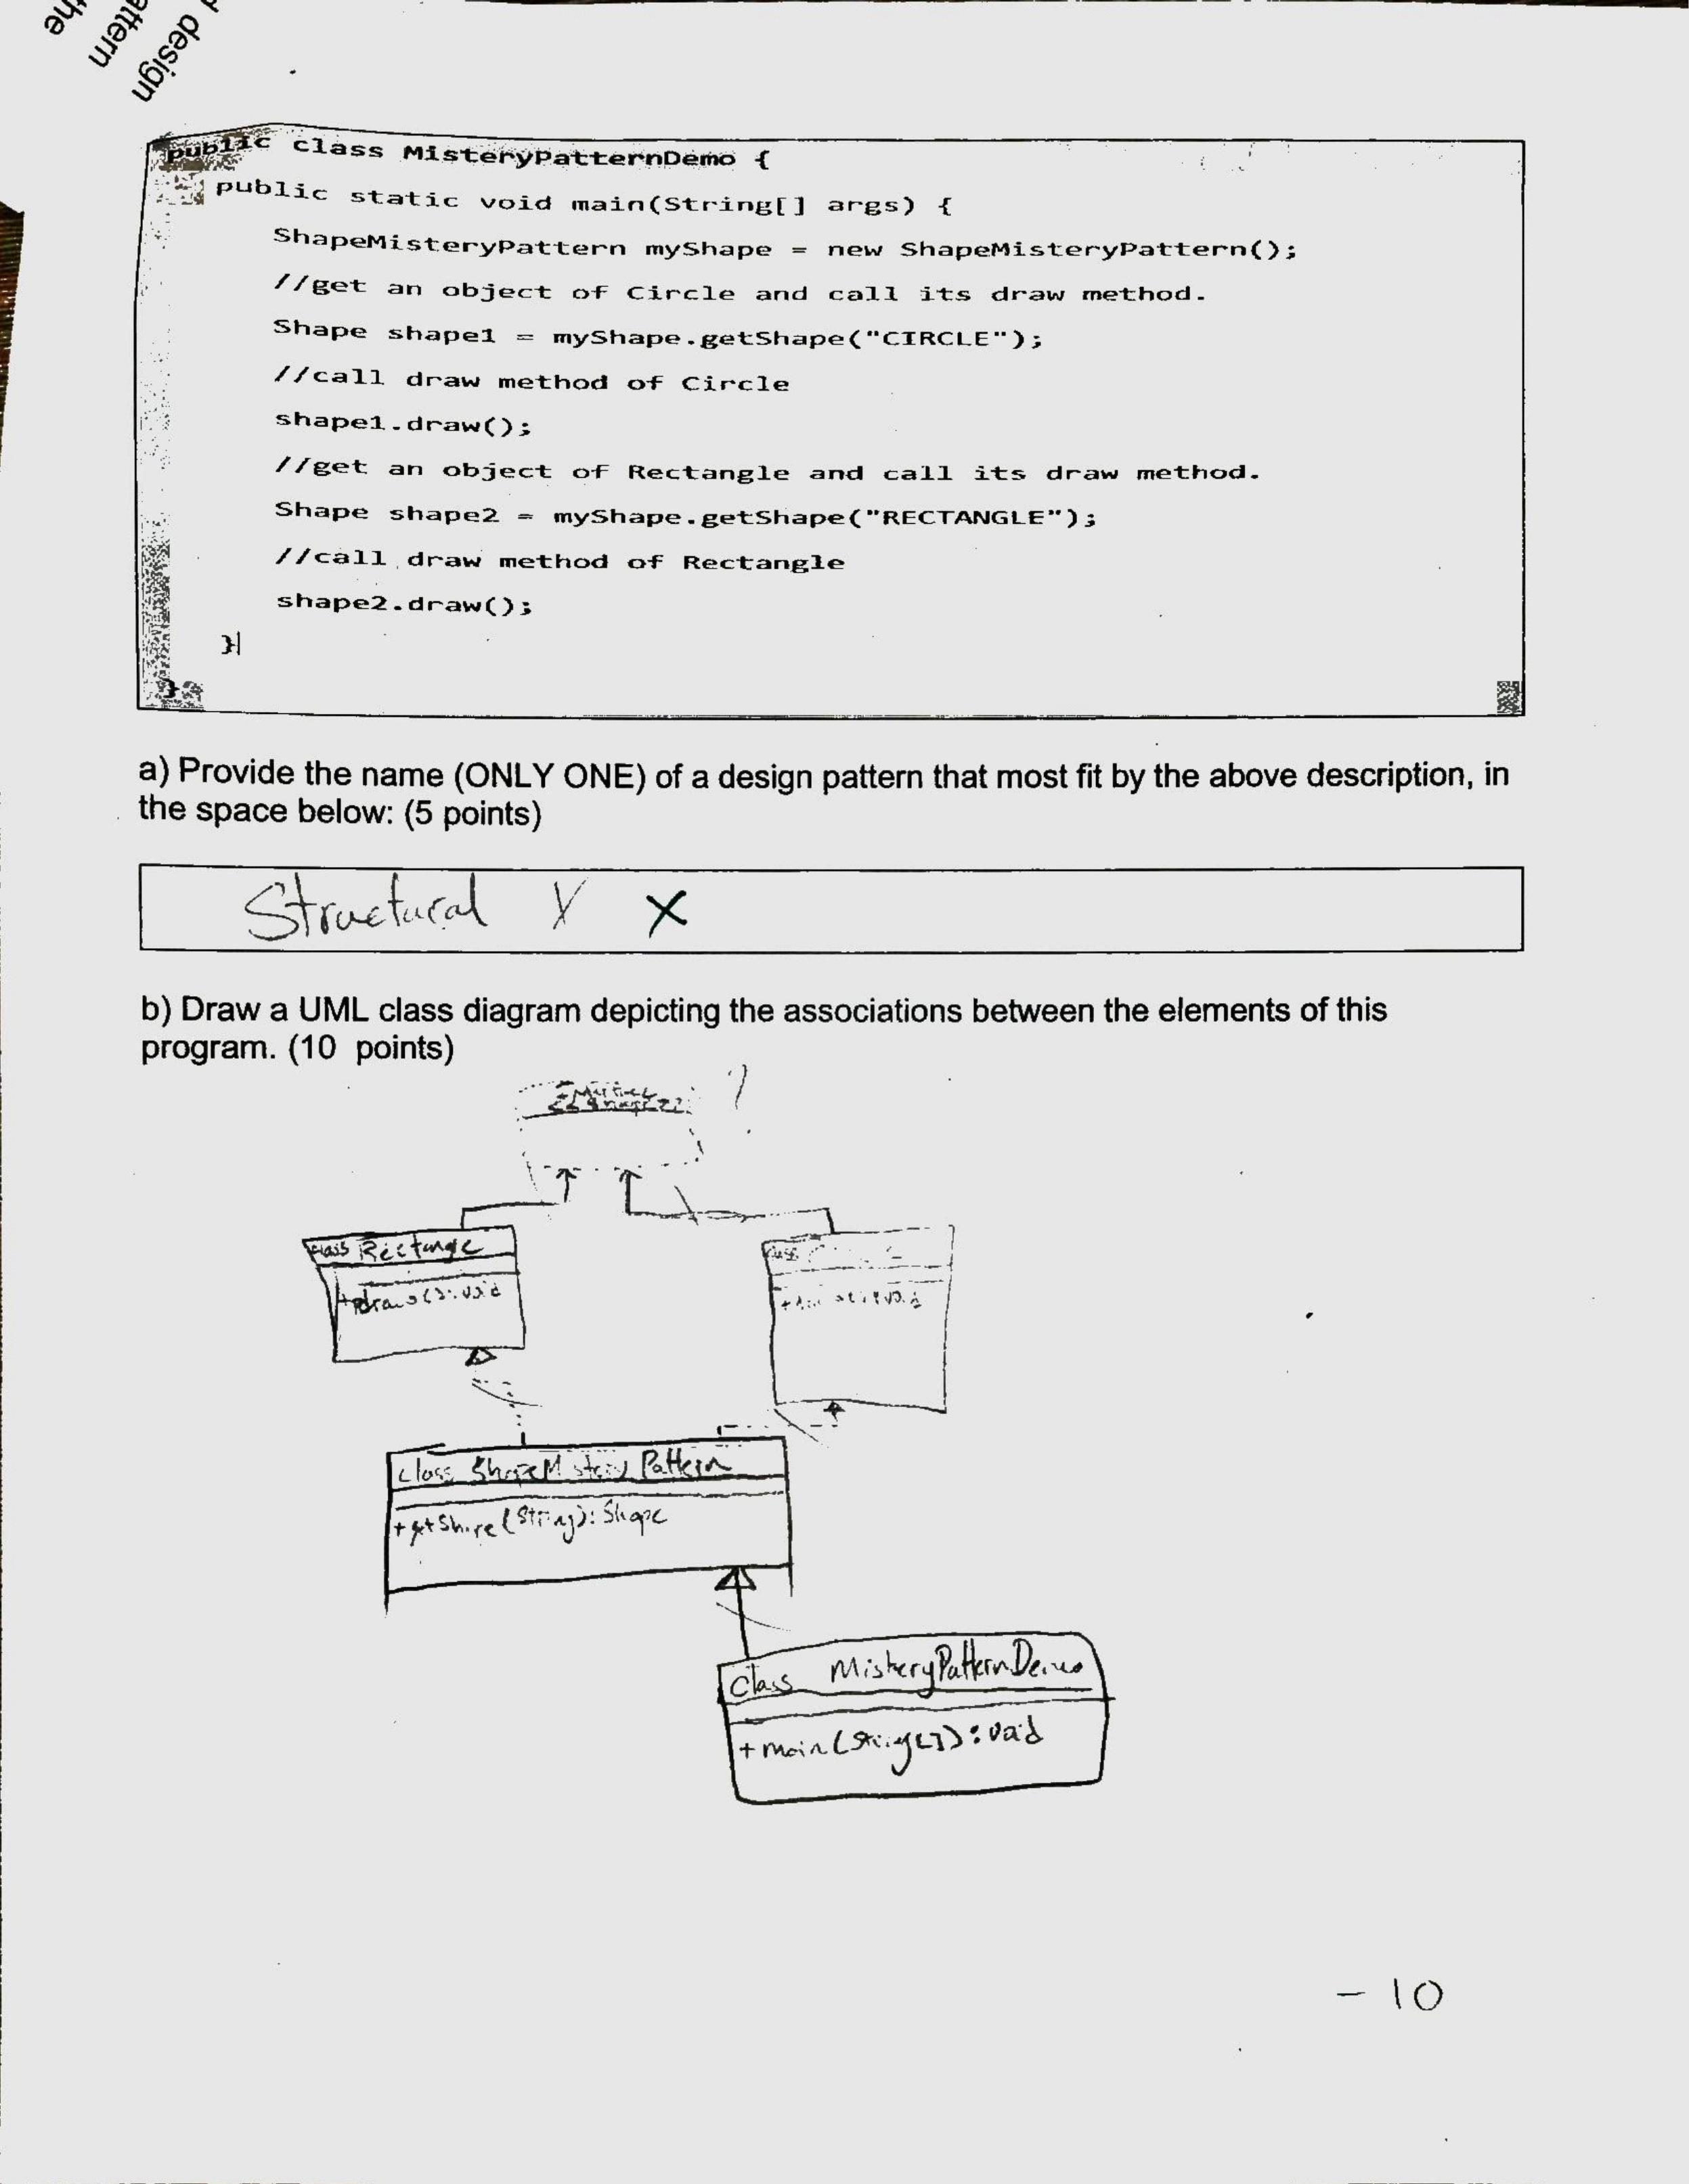 the
attern
design
public class MisteryPatternDemo {
public static void main(String[] args) {
ShapeMisteryPattern myShape = new ShapeMisteryPattern();
//get an object of Circle and call its draw method.
Shape shape1 = myShape.getShape("CIRCLE");
//call draw method of Circle
shape1.draw();
//get an object of Rectangle and call its draw method.
Shape shape2 = myShape.getShape("RECTANGLE");
//call draw method of Rectangle
shape2.draw();
}
}
a) Provide the name (ONLY ONE) of a design pattern that most fit by the above description, in
the space below: (5 points)
Structural X X
b) Draw a UML class diagram depicting the associations between the elements of this
program. (10 points)
?
class Rectangle
+draw(): void
class
class ShapeMisteryPattern
+getShape(String): Shape
class MisteryPatternDemo
+main(String[]): void
- 10